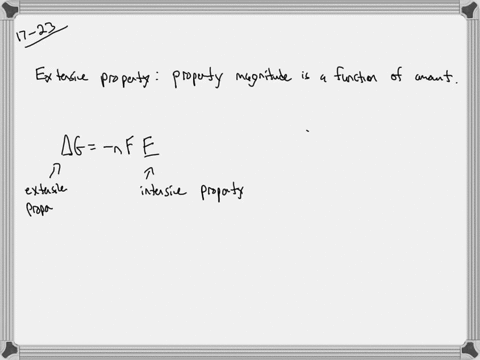 17-23
Extensive property: property magnitude is a function of amount.
ΔG = -nFE
extensive intensive property
propa